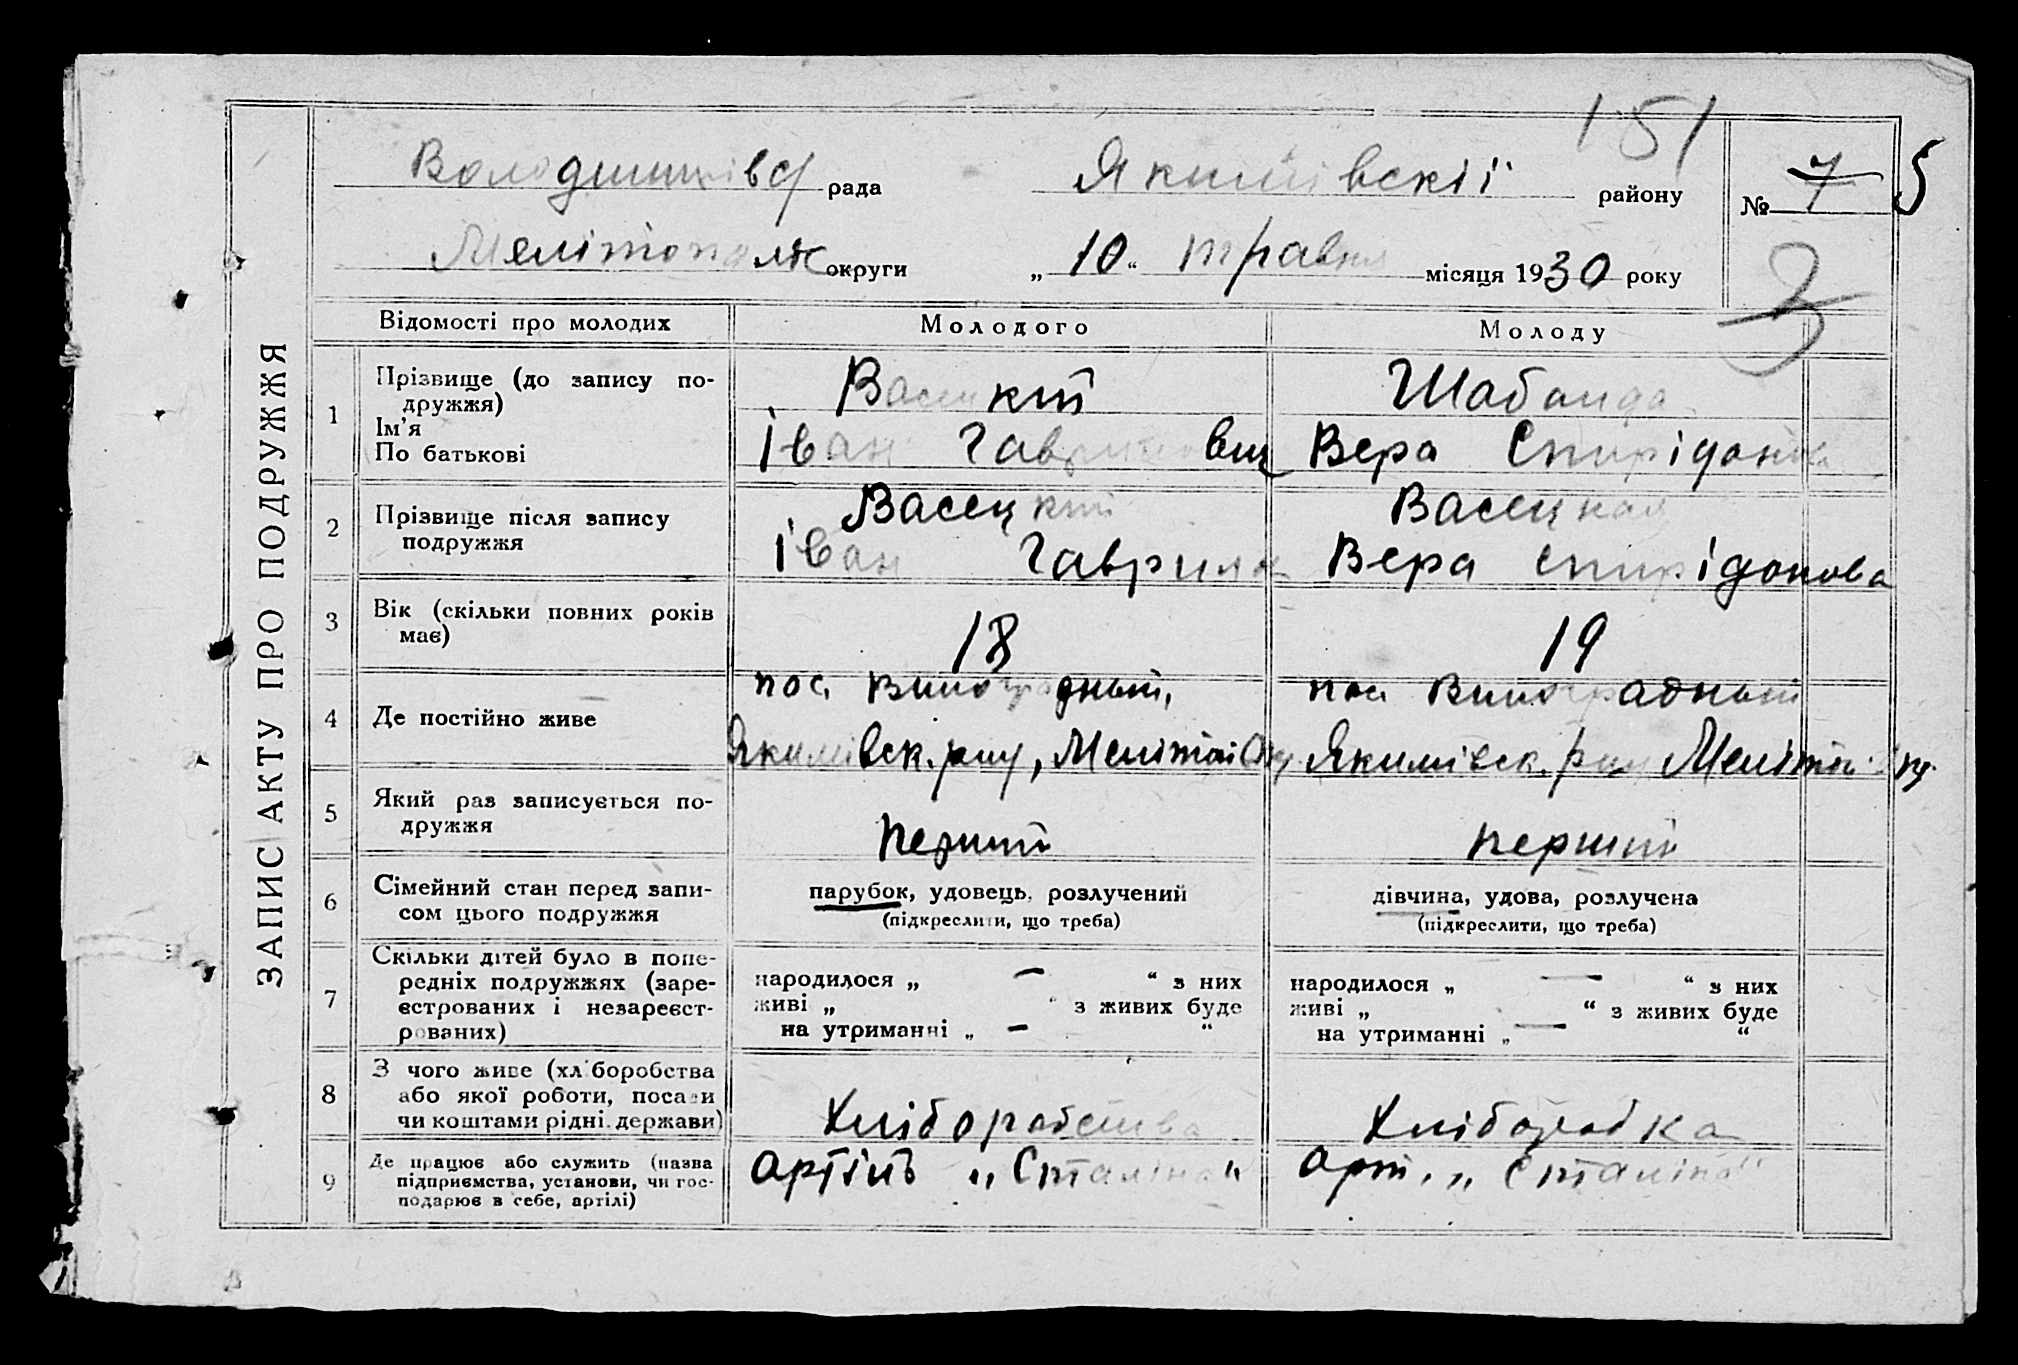 151
рада Якимівскії району № 7 5
Мелітопольк округи „ 10 “ травня місяця 1930 року
3
ЗАПИС АКТУ ПРО ПОДРУЖЖЯ
Відомості про молодих Молодого Молоду
1 Прізвище (до запису по-
дружжя)
Васецкий Шабанда
Ім’я
По батькові
Іван Гаврилович Вера Спирідонова
2 Прізвище після запису
подружжя
Васецкий Васецкая
Іван Гаврилов Вера Спирідонова
3 Вік (скільки повних років
має)
18 19
4 Де постійно живе
пос Виноградный, пос Виноградный
Якимівск. рну, Меліто Якимівск. рну Меліто
5 Який раз записується по-
дружжя
перший перший
6 Сімейний стан перед запи-
сом цього подружжя
парубок, удовець, розлучений дівчина, удова, розлучена
(підкреслити, що треба) (підкреслити, що треба)
7 Скільки дітей було в попе-
редніх подружжях (заре-
єстрованих і незареєст-
рованих)
народилося „ — “ з них народилося „ — “ з них
живі „ “ з живих буде живі „ “ з живих буде
на утриманні „ — “ на утриманні „ — “
8 З чого живе (хліборобства
або якої роботи, посади
чи коштами рідні, держави)
Хліборобства Хліборобка
9 Де працює або служить (назва
підприємства, установи, чи гос-
подарює в себе, артілі)
Артіль „Сталіна“ Арт. „Сталіна“